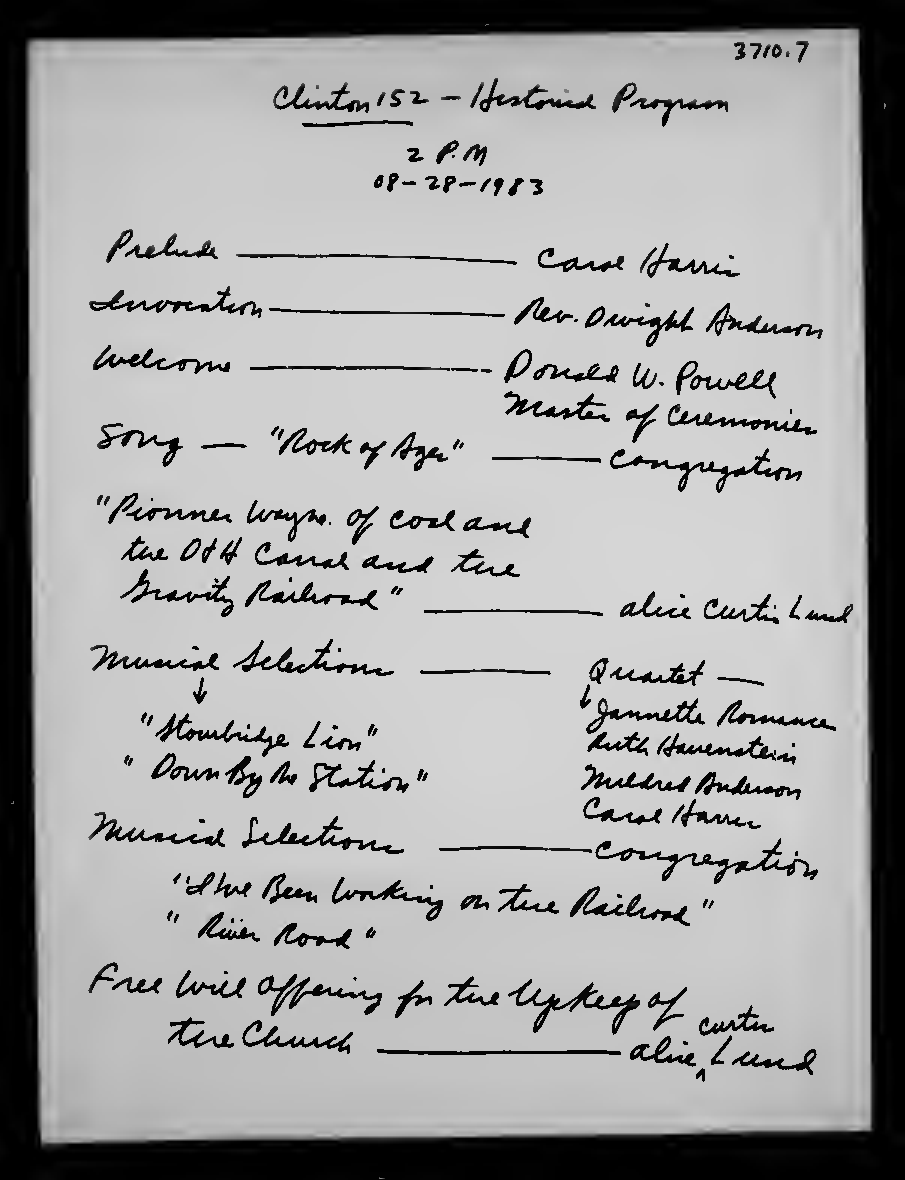 3710.7
Clinton 152 - Historical Program
2 P.M
08-28-1983
Prelude — Carol Harris
Invocation — Rev. Dwight Anderson
Welcome — Donald W. Powell
Master of Ceremonies
Song — "Rock of Ages" — Congregation
"Pionner Wayne. of coal and
the D&H Canal and the
Gravity Railroad" — Alice Curtis Lund
Musical Selections — Quartet —
↓ ↓ Jannette Romance
"Stourbridge Lion" Ruth Hauenstein
"Down By the Station" Mildred Anderson
Carol Harris
Musical Selections — Congregation
"I've Been Working on the Railroad"
"River Road"
Free Will Offering for the Upkeep of
the Church — Alice ^ Curtis Lund